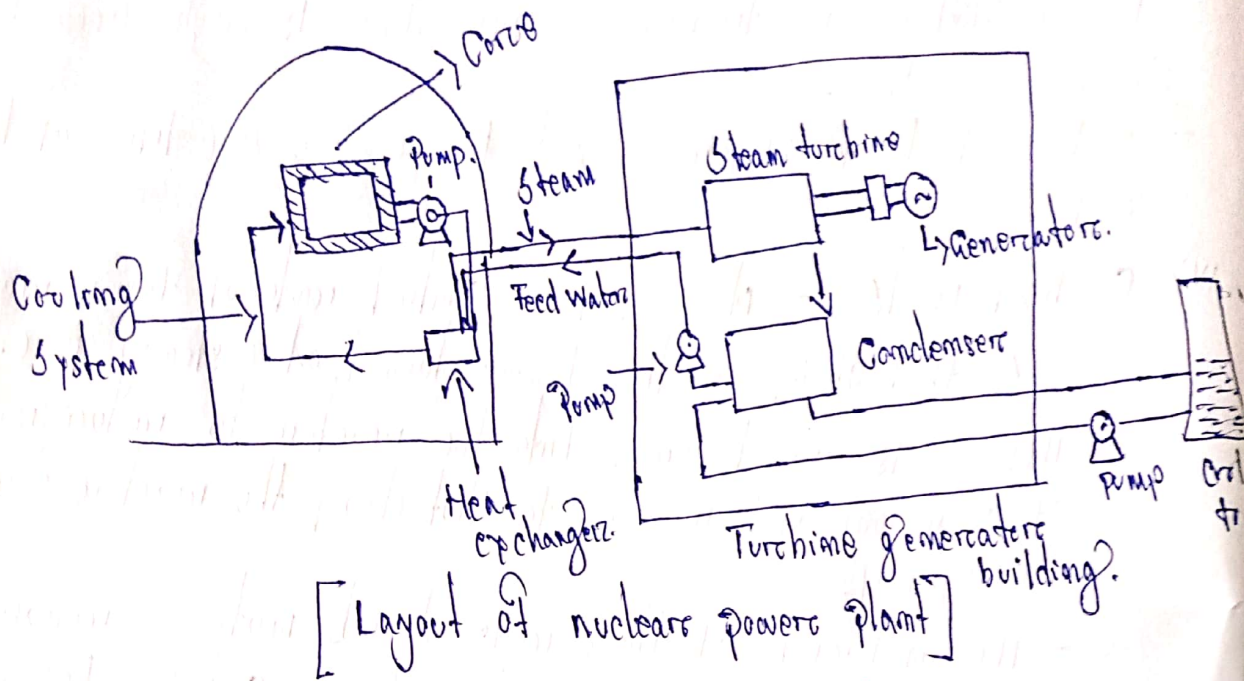 Core
Pump.
Steam
Steam turbine
Generator.
Cooling
System
Feed Water
Condenser
Pump
Pump
Heat
exchanger.
Turbine generator
building.
[Layout of nuclear power plant]